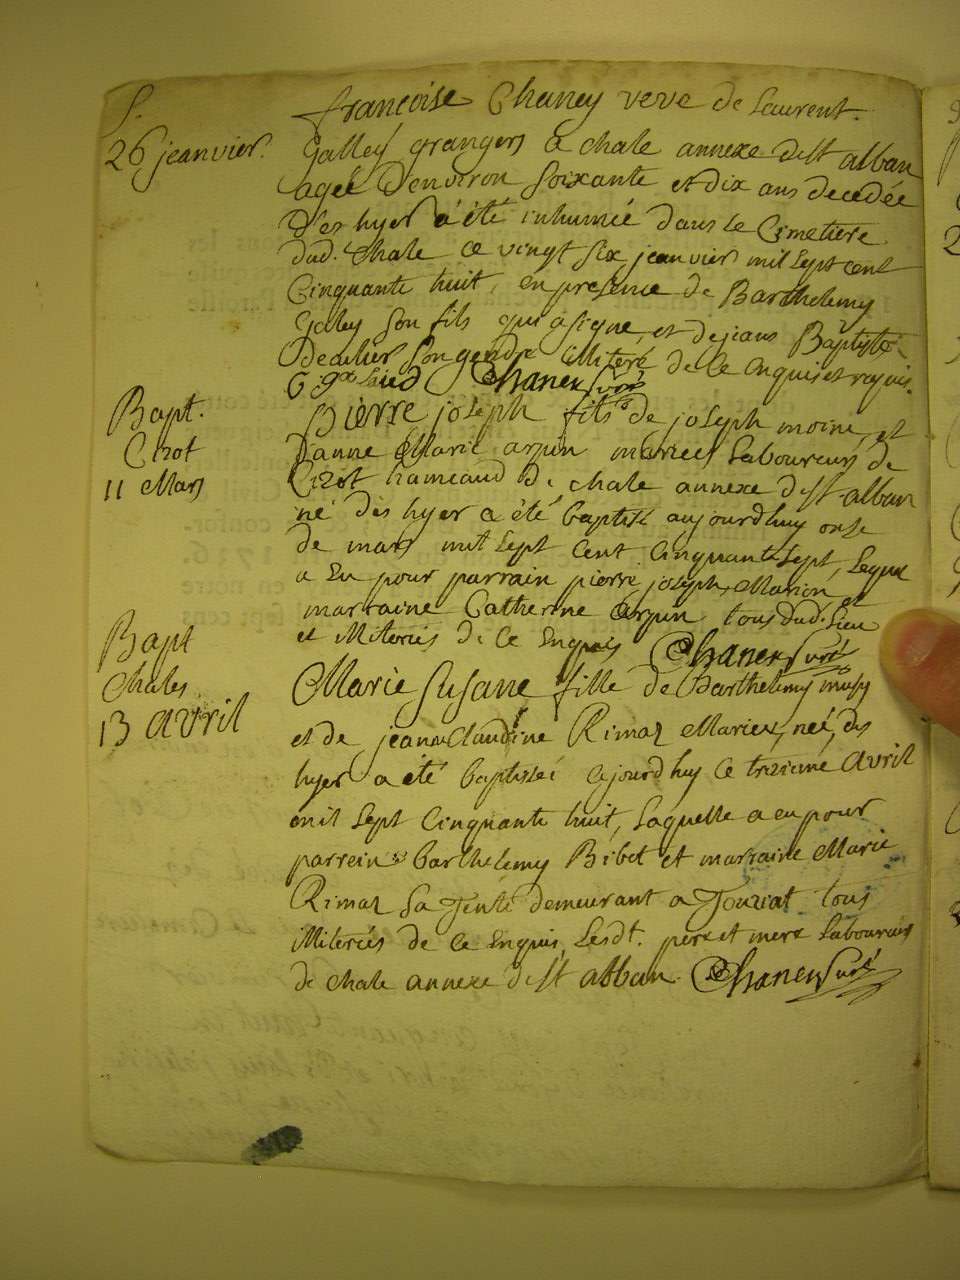 S.
26 jeanvier.
francoise Chaney veve de Laurent
Galley grangers a chale annexe de st alban
agée d'environ soixante et dix ans decedée
d'es hyer a été inhumée dans le Cimetiere
dud. chale ce vingt six jeanvier mil sept cent
Cinquante huit, en presence de Barthelemy
Galey son fils qui a signe, et de jean Baptiste
son gendre illiteré de ce enquis et requis.
Chanen Curé
Bapt.
Cirot
11 Mars
Pierre joseph fils de joseph moine, et
d'anne Marie arpin mariés Laboureurs de
Cirot hameaud de chale annexe de st alban
né dès hyer a été baptisé aujourdhuy onse
de mars mil sept cent cinquante sept, Lequel
a eu pour parrain pierre joseph Marion et
marraine Catherine Arpin tous dud. Lieu
et illiterés de ce enquis Chanen Curé
Bapt
Chales
13 avril
Marie Susane fille de Barthelemy
et de jeanne Claudine Rimaz Mariés, née, des
hyer a été baptissée ajourdhuy ce treziéme avril
mil sept cinquante huit, Laquelle a eu pour
parrein barthelemy Bibet et marraine Marie
Rimaz sa Tente demeurant a Touriat tous
illiterés de ce enquis, Lesdt. pere et mere Laboureurs
de chale annexe de st alban. Chanen Curé